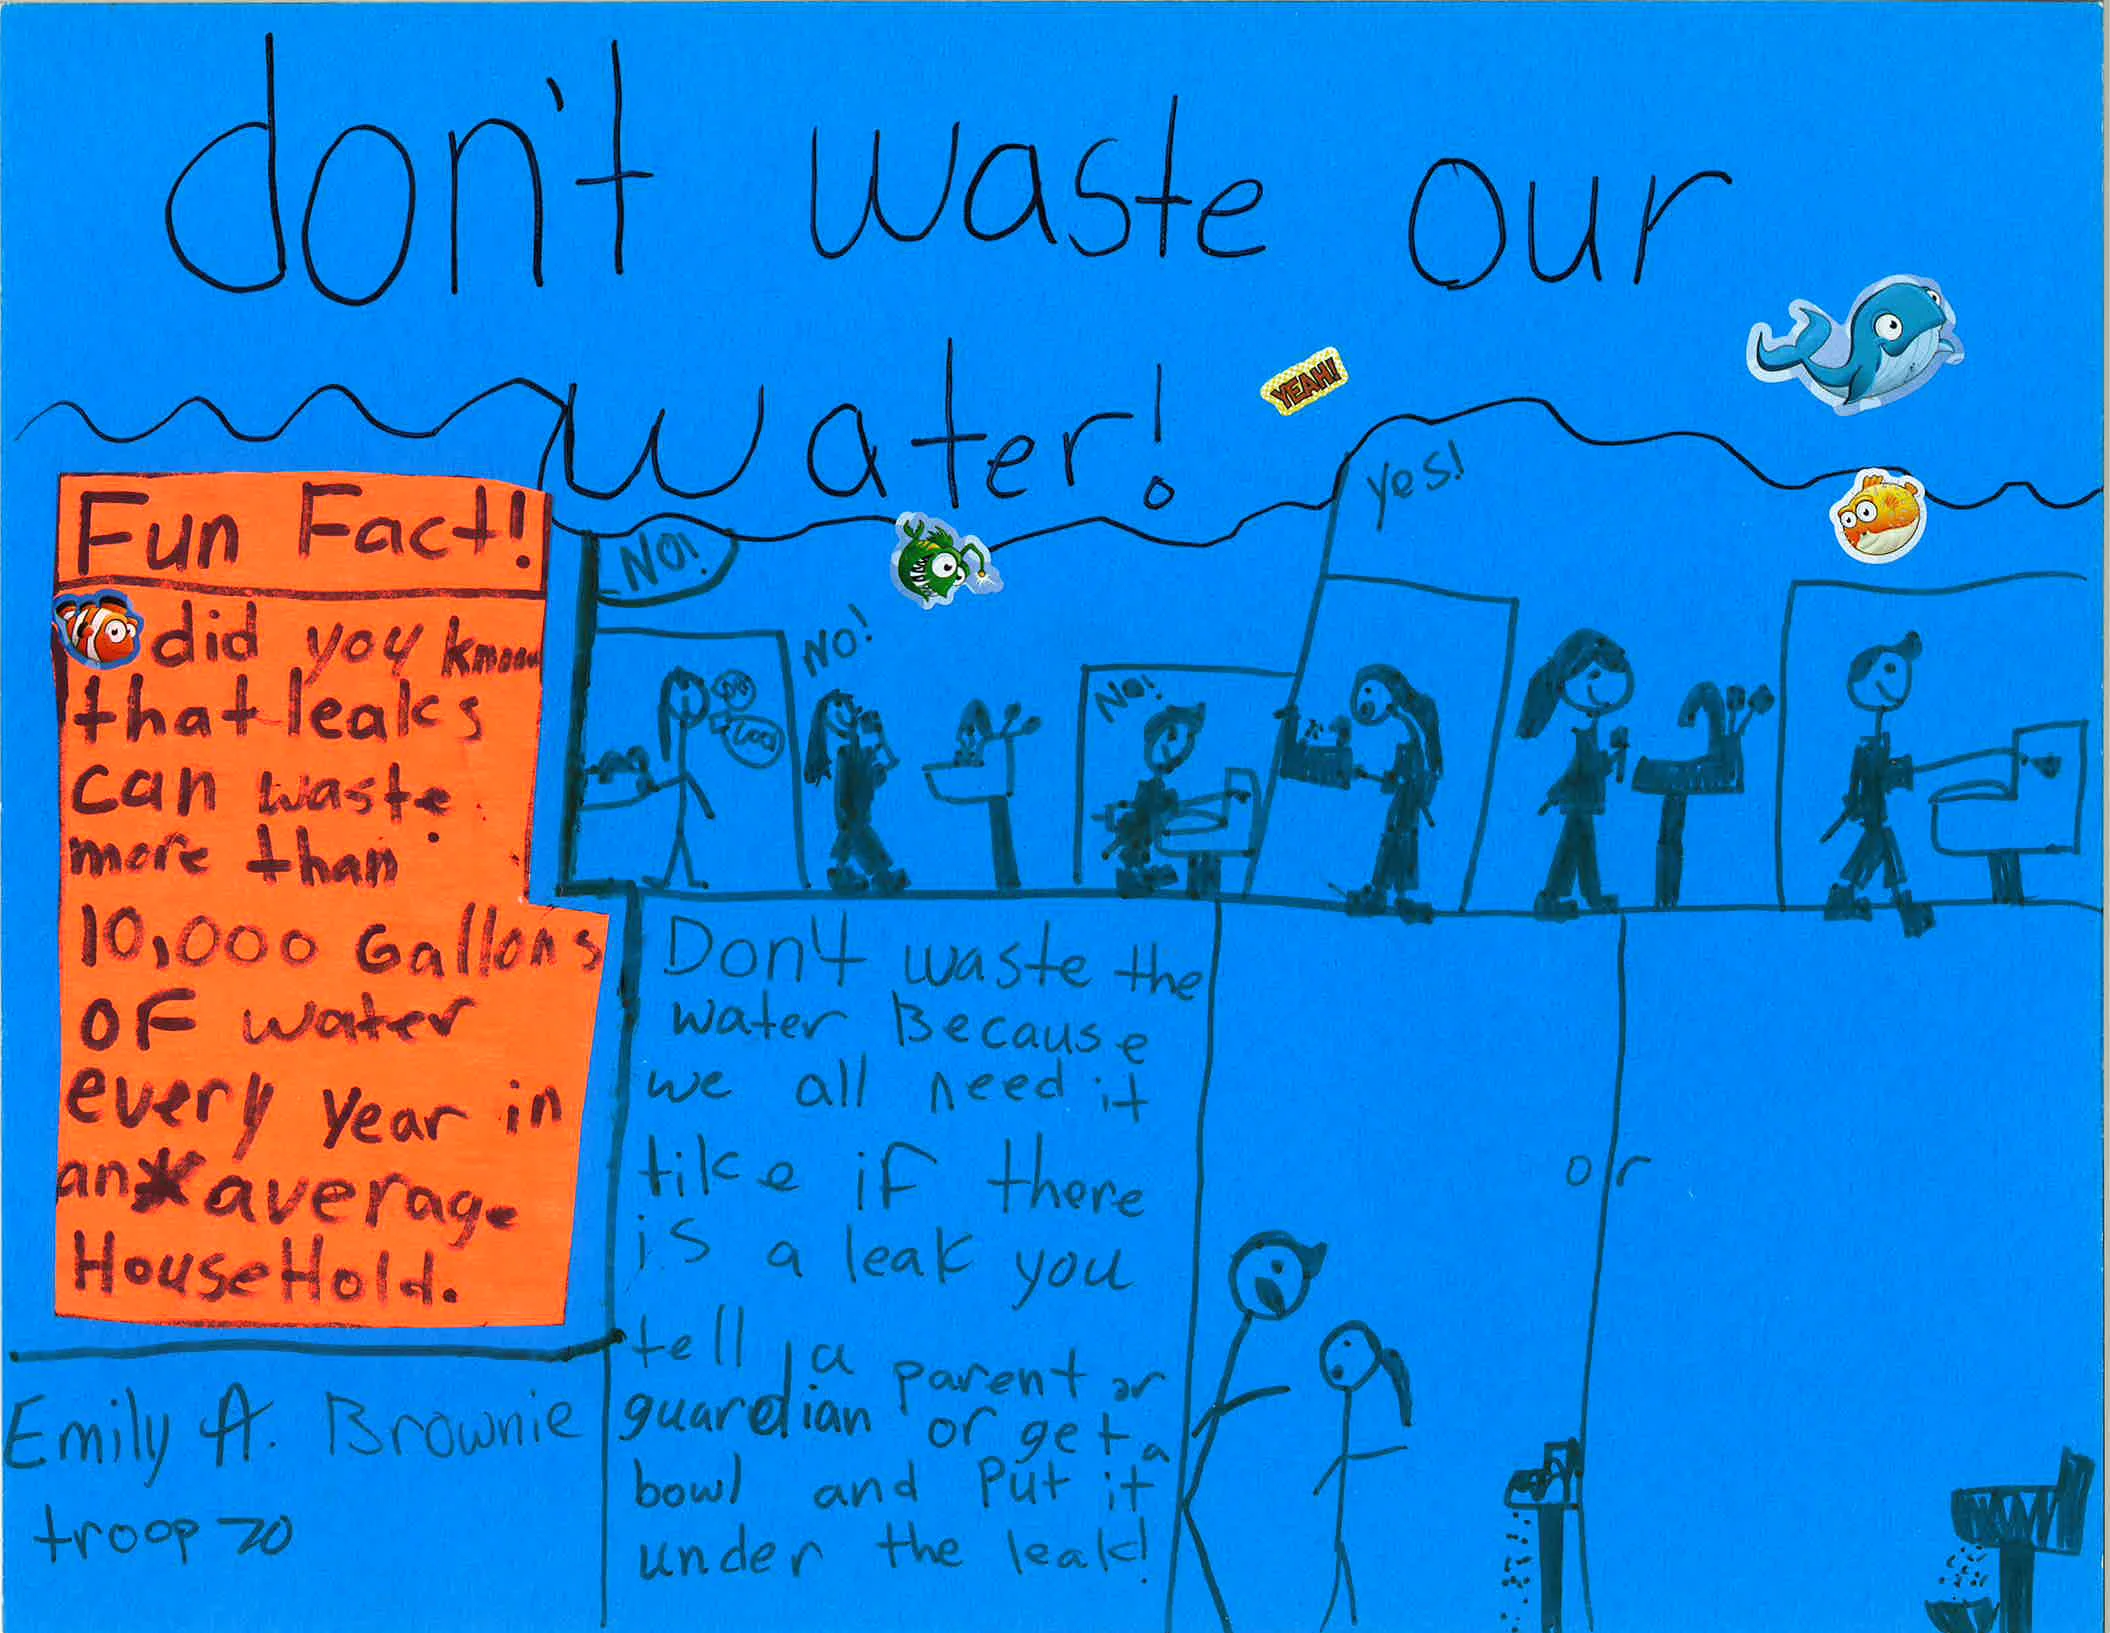 don't waste our
water!
YEAH!
Fun Fact!
did you know
that leaks
can waste
more than
10,000 Gallons
OF water
every year in
an average
HouseHold.
Emily A. Brownie
troop 70
NO!
NO!
NO!
yes!
Don't waste the
water Because
we all need it
like if there
is a leak you
tell a parent or
guardian or get a
bowl and Put it
under the leak!
or